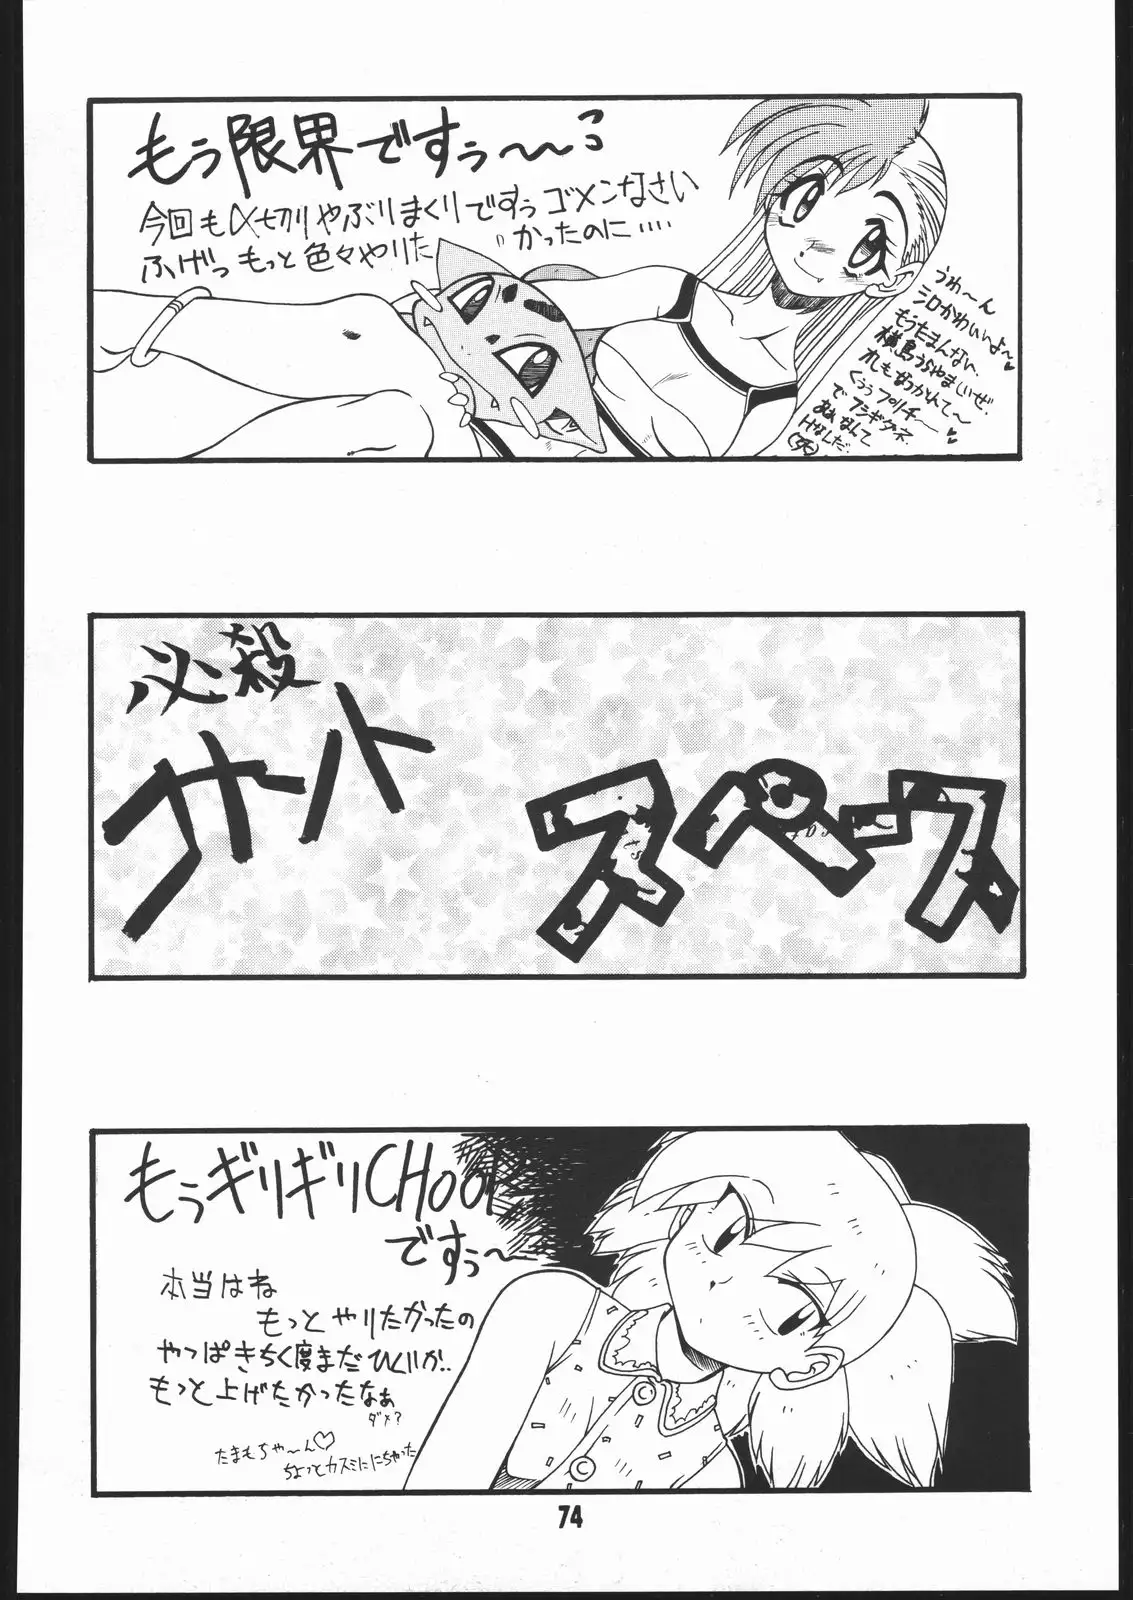 もう限界ですぅ〜〜
今回も〆切りやぶりまくりですぅゴメンなさい
ふげっ もっと色々やりたかったのに‥‥
うわ〜ん
シロかわいいよ〜♥
もうたまんない、
横島うらやましいぜ。
くぅぅプリチー〜♥
でフシギダネ
Hなんだ。
(死)
必殺
フリートスペース
もぅギリギリCHOOl
ですぅ〜
本当はね
もっとやりたかったの
やっぱきちく度まだひくいか‥
もっと上げたかったなぁ
ダメ?
たまもちゃ〜ん♡
ちょっとカスミににちゃった
74